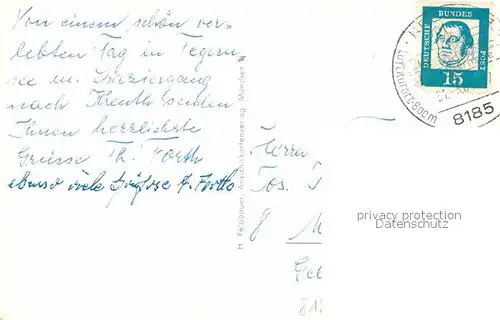 Von einem schön ver-
lebten Tag in Tegern-
see u. Spaziergang
nach Kreuth senden
Ihnen herzlichste
Grüsse Th. Forth
ebenso viele Grüsse
H. Feldbauer, Ansichtskartenverlag München
Herrn
Jos.
8 M
8185
DEUTSCHE BUNDES POST
15
Luftkurort
privacy protection
Datenschutz